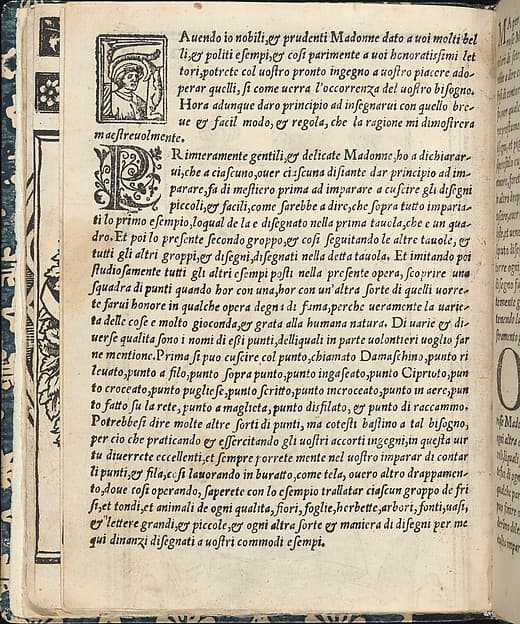 Auendo io nobili,& prudenti Madonne dato a uoi molti bel
li,& politi esempi,& cosi parimente a uoi honoratissimi let
tori,potrete col uostro pronto ingegno a uostro piacere ado-
perar quelli, si come uerra l'occorrenza del uostro bisogno.
Hora adunque daro principio ad insegnarui con quello bre-
ue & facil modo, & regola, che la ragione mi dimostrera
maestreuolmente.
PRimeramente gentili,& delicate Madonne,ho a dichiarar-
ui,che a ciascuno,ouer ciascuna disiante dar principio ad im-
parare,fa di mestiero prima ad imparare a cuscire gli disegni
piccoli,& facili,come sarebbe a dire,che sopra tutto impariа-
ti lo primo esempio,loqual de la e disegnato nella prima tauola,che e un qua-
dro. Et poi lo presente secondo groppo,& cosi seguitando le altre tauole, &
tutti gli altri groppi,& disegni,disegnati nella detta tauola. Et imitando poi
studiosamente tutti gli altri esempi posti nella presente opera, scoprire una
squadra di punti quando hor con una,hor con un'altra sorte di quelli uorre-
te farui honore in qualche opera degna di fama,perche ueramente la uarie-
ta delle cose e molto gioconda,& grata alla humana natura. Di uarie & di-
uerse qualita sono i nomi di essi punti,delliquali in parte uolontieri uoglio far
ne mentione. Prima si puo cuscire col punto,chiamato Damaschino,punto ri
leuato,punto a filo,punto sopra punto,punto ingaseato,punto Ciprioto,pun
to croceato,punto pugliese,punto scritto,punto incroceato,punto in aere,pun
to fatto su la rete, punto a maglieta, punto disfilato, & punto di raccammo.
Potrebbesi dire molte altre sorti di punti, ma cotesti bastino a tal bisogno,
per cio che praticando & essercitando gli uostri accorti ingegni,in questa uir
tu diuerrete eccellenti,et sempre porrete mente nel uostro imparar di contar
li punti,& fila,cosi lauorando in buratto,come tela, ouero altro drappamen-
to,doue cosi operando, saperete con lo esempio trallatar ciascun groppo de fri
si,et tondi,et animali de ogni qualita, fiori, foglie,herbette,arbori, fonti,uasi,
& lettere grandi,& piccole,& ogni altra sorte & maniera di disegni per me
qui dinanzi disegnati a uostri commodi esempi.